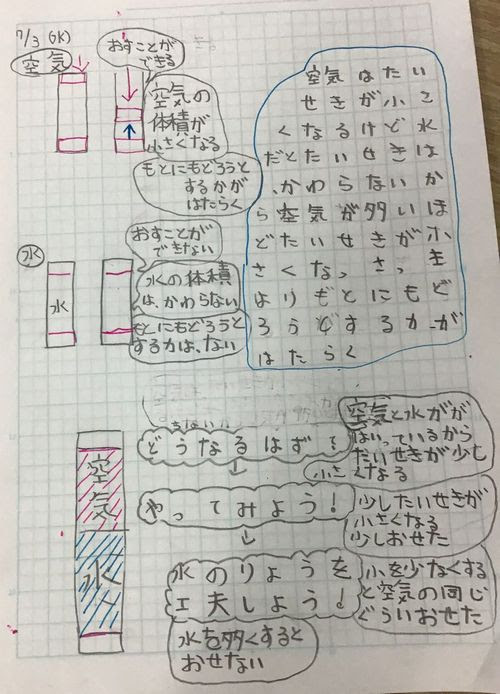 7/3 (水)
空気
おすことが
できる
空気の
体積が
小さくなる
もとにもどろうと
する力が
はたらく
空気はたい
せきが小さ
くなるけど水
だとたいせきは
、かわらないか
ら空気が多いほ
どたいせきが小
さくなっ、さっき
よりもとにもど
ろうとする力が
はたらく
水
水
おすことが
できない
水の体積
は、かわらない
もとにもどろうと
する力は、ない
どうなるはず？
空気と水がが
はいっているから
たいせきが少し
小さくなる
空気
水
やってみよう！
少したいせきが
小さくなる
少しおせた
水のりょうを
工夫しよう！
水を少なくする
と空気の同じ
ぐういおせた
水を多くすると
おせない